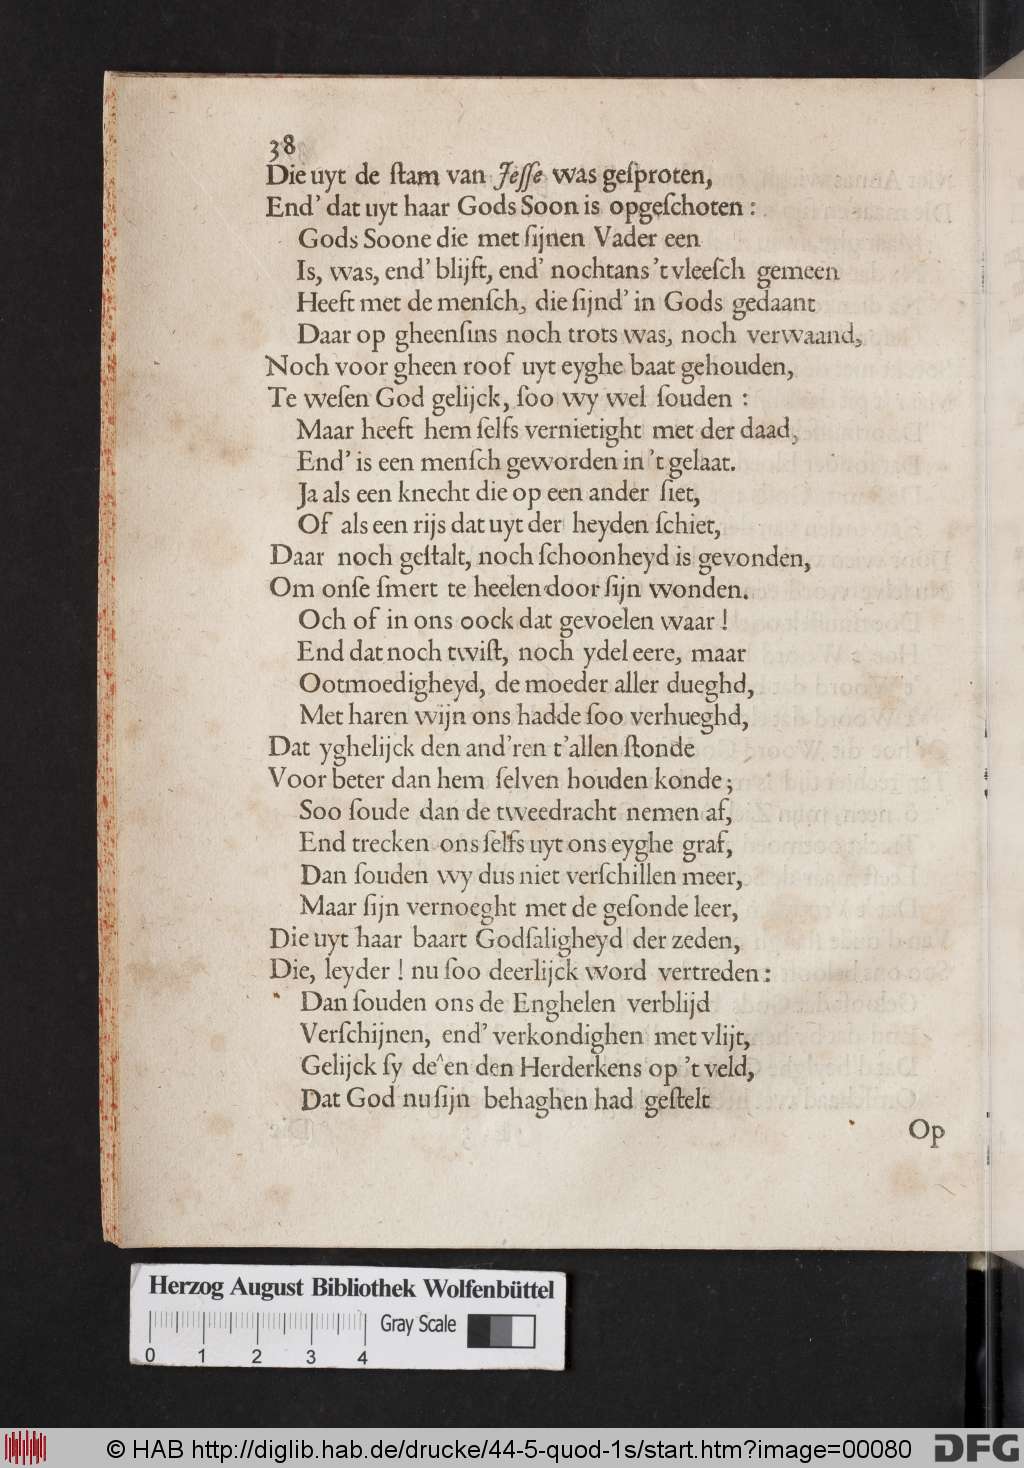 38
Die uyt de ſtam van Jeſſe was geſproten,
End' dat uyt haar Gods Soon is opgeſchoten :
Gods Soone die met ſijnen Vader een
Is, was, end' blijft, end' nochtans 't vleeſch gemeen
Heeft met de menſch, die ſijnd' in Gods gedaant
Daar op gheenſins noch trots was, noch verwaand,
Noch voor gheen roof uyt eyghe baat gehouden,
Te weſen God gelijck, ſoo wy wel ſouden :
Maar heeft hem ſelfs vernietight met der daad,
End' is een menſch geworden in 't gelaat.
Ja als een knecht die op een ander ſiet,
Of als een rijs dat uyt der heyden ſchiet,
Daar noch geſtalt, noch ſchoonheyd is gevonden,
Om onſe ſmert te heelen door ſijn wonden.
Och of in ons oock dat gevoelen waar !
End dat noch twiſt, noch ydel eere, maar
Ootmoedigheyd, de moeder aller dueghd,
Met haren wijn ons hadde ſoo verhueghd,
Dat yghelijck den and'ren t'allen ſtonde
Voor beter dan hem ſelven houden konde;
Soo ſoude dan de tweedracht nemen af,
End trecken ons ſelfs uyt ons eyghe graf,
Dan ſouden wy dus niet verſchillen meer,
Maar ſijn vernoeght met de geſonde leer,
Die uyt haar baart Godſaligheyd der zeden,
Die, leyder ! nu ſoo deerlijck word vertreden :
Dan ſouden ons de Enghelen verblijd
Verſchijnen, end' verkondighen met vlijt,
Gelijck ſy de^en den Herderkens op 't veld,
Dat God nu ſijn behaghen had geſtelt
Op
Herzog August Bibliothek Wolfenbüttel
Gray Scale
0 1 2 3 4
© HAB http://diglib.hab.de/drucke/44-5-quod-1s/start.htm?image=00080
DFG